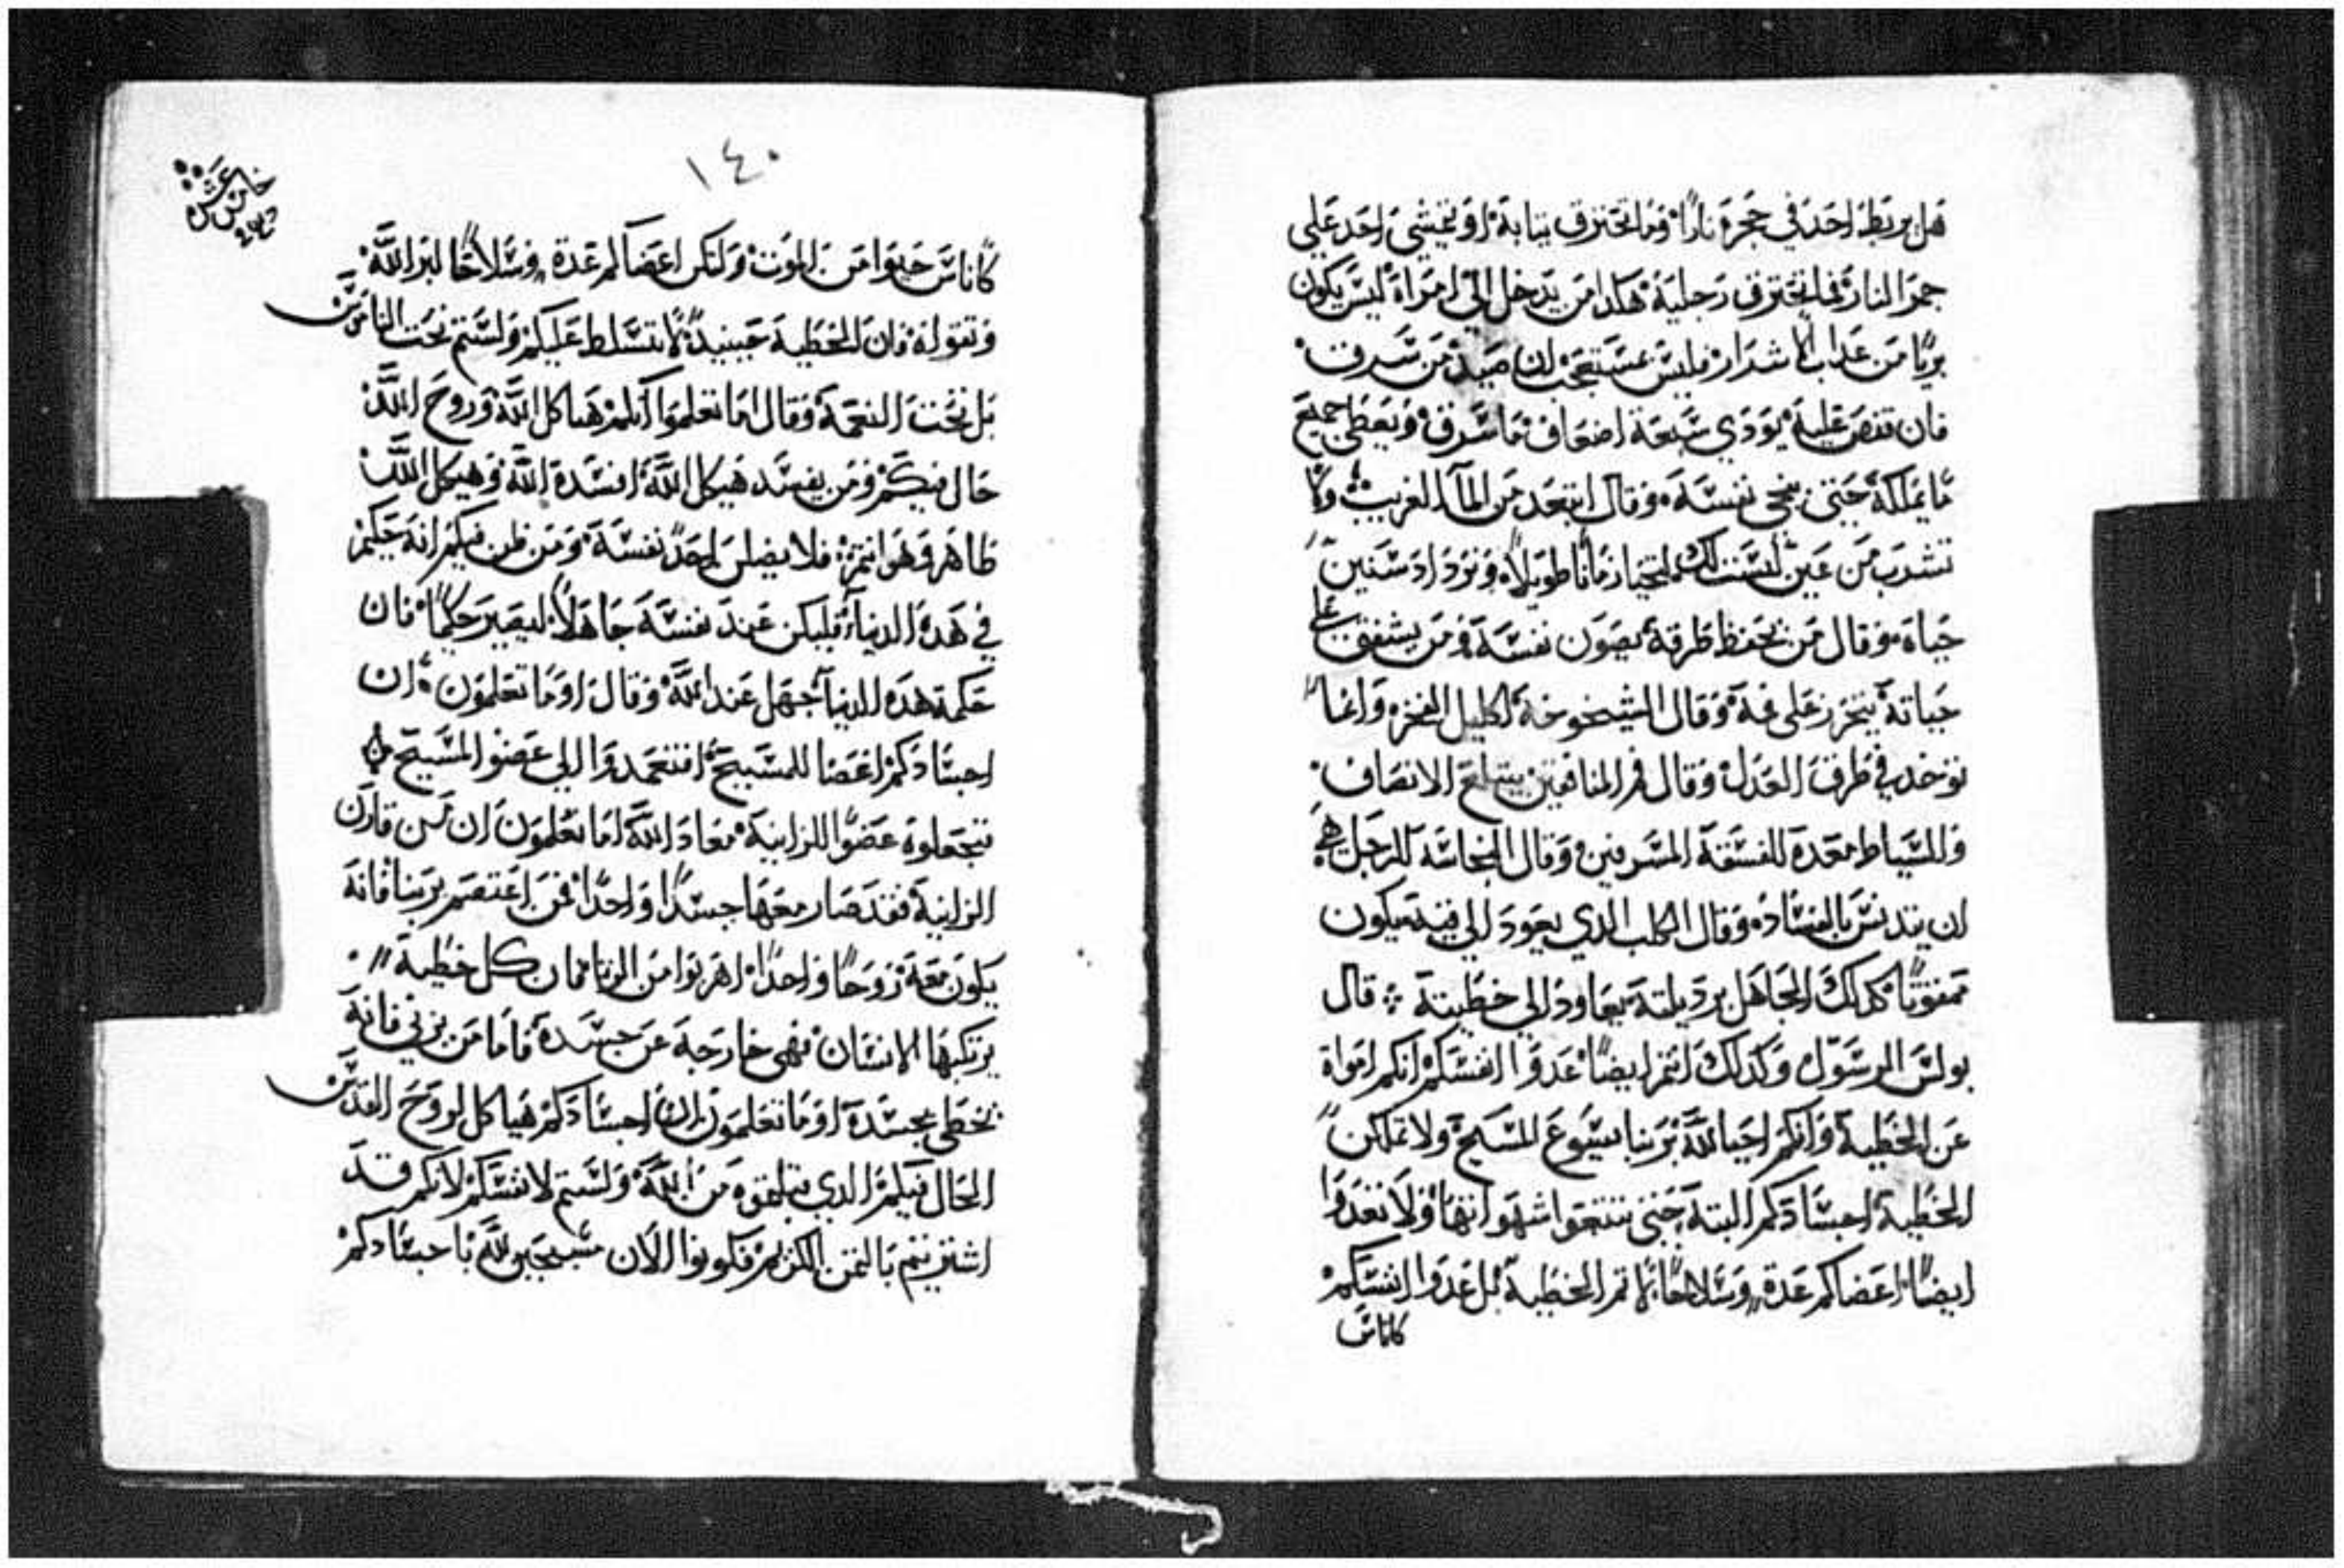 هل يربط احد في حجرة نارًا وما تحترق تيابة او يمشي احد علي
جمر النار فما تحترق رجلية هكدا من يدخل الي امراة ليس يكون
بريًا من عداب الاشرار فليس عستعجب ان صيد من سرق
فان قنص عليه يودي سبعة اضعاف ما سرق ويعطي جميع
ما يملكة حتي ينجي نفسة وقال ابتعد من المآ الغريب ولا
تشرب من عين ليست لك لتحيا زمانًا طويلاً وتزداد سنين
حياة وقال من يحفظ طرقة يصون نفسة ومن يشفق علي
حياتة يتحرز علي فمة وقال الشيخوخة اكليل الفخر وانما
توخد في طرق العدل وقال فم المنافقين يبتلع الانصاف
والسياط معدة للفسقة المسرفين وقال النجاسة للرجل هي
ان يتدنس بالفساد وقال الكلب الدي يعود الي قيته يكون
ممقوتًا كدلك الجاهل برديلتة يعاود الي خطيتة قال
بولس الرسول وكدلك انتم ايضًا عدوا انفسكم انكم امواة
عن الخطية وانكم احيا لله بربنا يسوع المسيح ولا تملكن
الخطية اجسادكم البتة حتي تتبعوا شهواتها ولا تعدوا
ايضًا اعضاكم عدة وسلاحًا لاتم الخطية بل عدوا انفسكم
كاناس
١٤٠
خامس عشر
كاناس حيوا من الموت ولتكن اعضاكم عدة وسلاحًا لبر الله
وتقواة فان الخطية حينيد لا تتسلط عليكم ولستم تحت الناموس
بل تحت النعمة وقال اما تعلموا انكم هياكل الله وروح الله
حال فيكم ومن يفسد هيكل الله افسدة الله وهيكل الله
طاهر وهو انتم فلا يضلن احد نفسة ومن ظن فيكم انه حكيم
في هده الدنيا فليكن عند نفسة جاهلاً ليصير حكيمًا فان
حكمة هده الدنيا جهل عند الله وقال او ما تعلمون ان
اجسادكم اعضا للمسيح افتعمدوا الي عضو المسيح
فتجعلوة عضوًا للزانية معاد الله اما تعلمون ان من قارن
الزانية فقد صار معها جسدًا واحدًا فمن اعتصم بربنا فانه
يكون معة روحًا واحدًا اهربوا من الزنا فان كل خطية
يرتكبها الانسان فهي خارجة عن جسدة فاما من يزني فانة
يخطي بجسدة او ما تعلمون ان اجسادكم هياكل لروح القدس
الحال فيكم الدي تتلقوه من الله ولستم لانفسكم لانكم قد
اشتريتم بالتمن الكريم فكونوا الان مسبحين لله باجسادكم